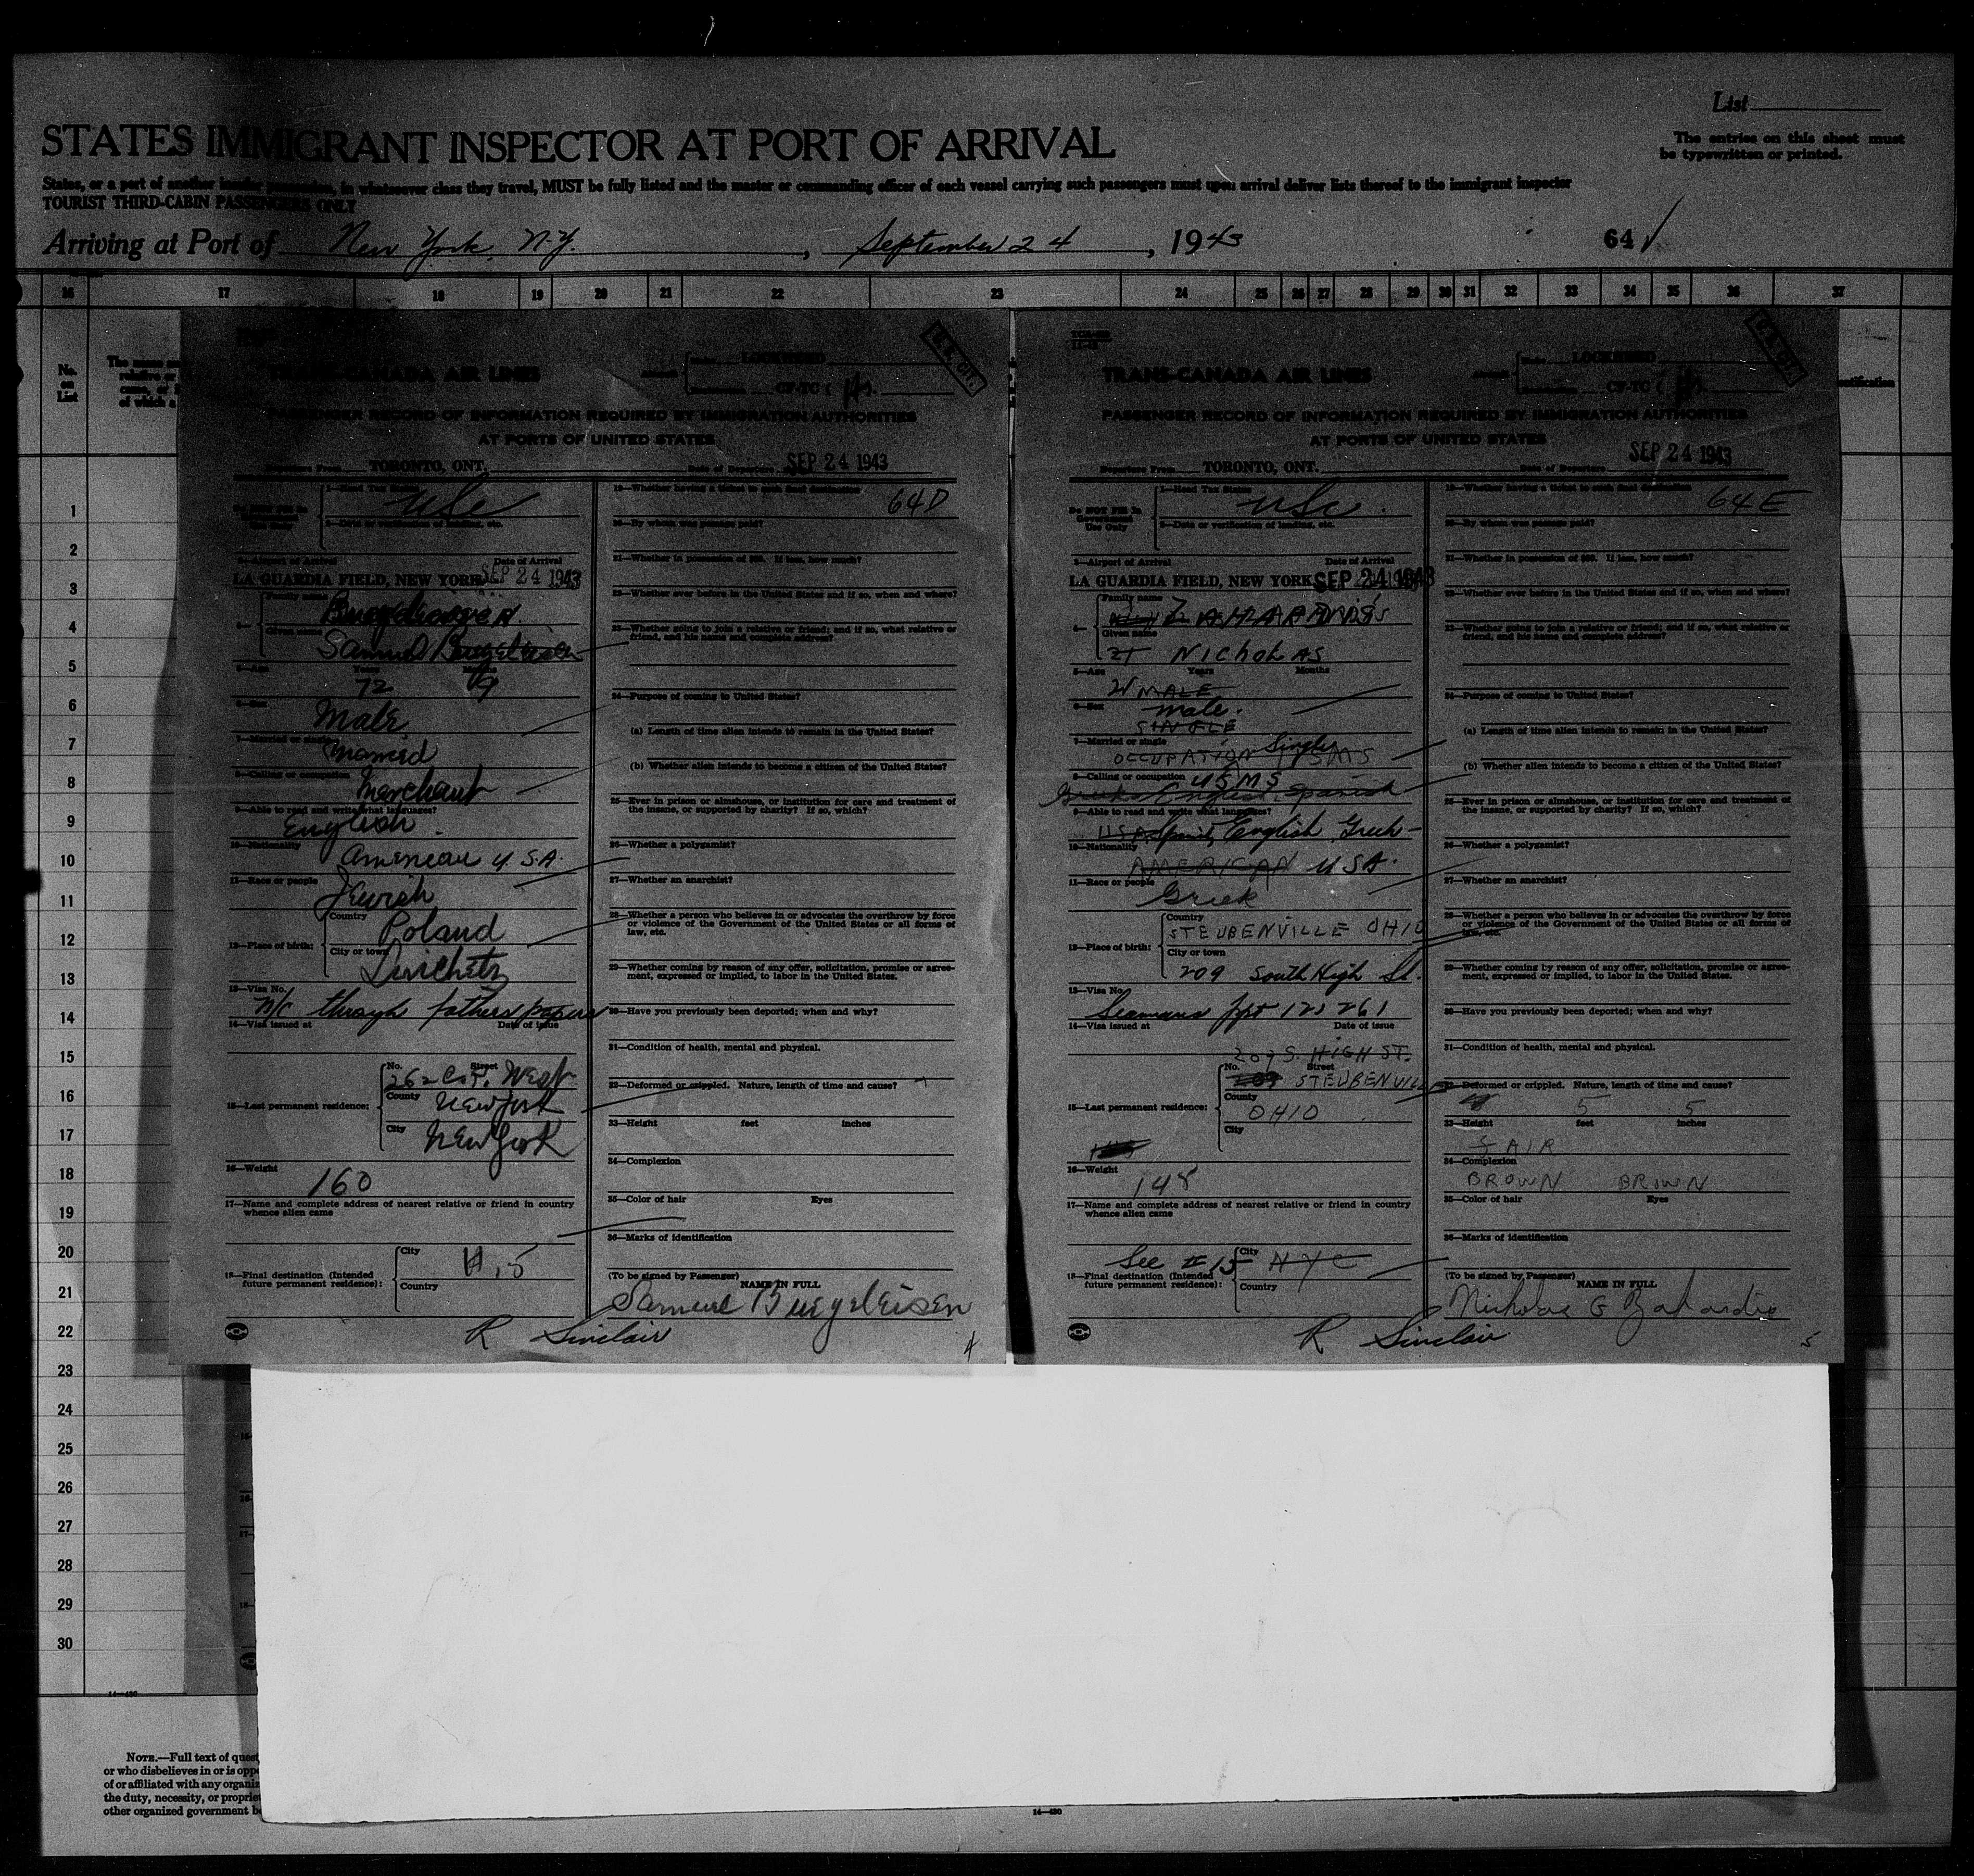 List
STATES IMMIGRANT INSPECTOR AT PORT OF ARRIVAL
The entries on this sheet must
be typewritten or printed.
States, or a part of another insular possession, in whatsoever class they travel, MUST be fully listed and the master or commanding officer of each vessel carrying such passengers must upon arrival deliver lists thereof to the immigrant inspector
TOURIST THIRD-CABIN PASSENGERS ONLY
Arriving at Port of New York, N.Y., September 24, 1943
64
16 17 18 19 20 21 22 23 24 25 26 27 28 29 30 31 32 33 34 35 36 37
No. on List
TRANS-CANADA AIR LINES
LOCKHEED
CF-TC
PASSENGER RECORD OF INFORMATION REQUIRED BY IMMIGRATION AUTHORITIES
AT PORTS OF UNITED STATES
Departure From TORONTO, ONT. Date of Departure SEP 24 1943
1—Head Tax Status
USC
2—Date or verification of landing, etc.
3—Airport of Arrival Date of Arrival
LA GUARDIA FIELD, NEW YORK SEP 24 1943
Family name
Given name
Samuel
5—Age Years Months
72 9
6—Sex
Male
7—Married or single
Married
8—Calling or occupation
Merchant
9—Able to read and write what languages?
English
10—Nationality
American U.S.A.
11—Race or people
Jewish
12—Place of birth:
Country
Poland
City or town
13—Visa No.
N/C through fathers papers
14—Visa issued at Date of issue
15—Last permanent residence:
No. Street
262 C.P. West
County
New York
City
New York
16—Weight
160
17—Name and complete address of nearest relative or friend in country
whence alien came
18—Final destination (Intended
future permanent residence):
City
Country
19—Whether having a ticket to such final destination
64D
20—By whom was passage paid?
21—Whether in possession of $50. If less, how much?
22—Whether ever before in the United States and if so, when and where?
23—Whether going to join a relative or friend; and if so, what relative or
friend, and his name and complete address?
24—Purpose of coming to United States?
(a) Length of time alien intends to remain in the United States?
(b) Whether alien intends to become a citizen of the United States?
25—Ever in prison or almshouse, or institution for care and treatment of
the insane, or supported by charity? If so, which?
26—Whether a polygamist?
27—Whether an anarchist?
28—Whether a person who believes in or advocates the overthrow by force
or violence of the Government of the United States or all forms of
law, etc.
29—Whether coming by reason of any offer, solicitation, promise or agree-
ment, expressed or implied, to labor in the United States.
30—Have you previously been deported; when and why?
31—Condition of health, mental and physical.
32—Deformed or crippled. Nature, length of time and cause?
33—Height feet inches
34—Complexion
35—Color of hair Eyes
36—Marks of identification
(To be signed by Passenger) NAME IN FULL
Samuel Buegeleisen
R Sinclair
4
TRANS-CANADA AIR LINES
LOCKHEED
CF-TC
PASSENGER RECORD OF INFORMATION REQUIRED BY IMMIGRATION AUTHORITIES
AT PORTS OF UNITED STATES
Departure From TORONTO, ONT. Date of Departure SEP 24 1943
Do NOT Fill In
Government
Use Only
1—Head Tax Status
USC
2—Date or verification of landing, etc.
3—Airport of Arrival Date of Arrival
LA GUARDIA FIELD, NEW YORK SEP 24 1943
Family name
Given name
21 NICHOLAS
5—Age Years Months
21 MALE
6—Sex
male.
SINGLE
7—Married or single Single
OCCUPATION USMS
8—Calling or occupation USMS
Greek English Spanish
9—Able to read and write what languages?
USA Spanish, English Greek
10—Nationality
AMERICAN USA.
11—Race or people
Greek
12—Place of birth:
Country
STEUBENVILLE OHIO
City or town
209 South High St.
13—Visa No.
Seamans ppt 123261
14—Visa issued at Date of issue
209 S. HIGH ST.
15—Last permanent residence:
No. Street
STEUBENVILLE
County
OHIO
City
16—Weight
148
17—Name and complete address of nearest relative or friend in country
whence alien came
See #15
18—Final destination (Intended
future permanent residence):
City NYC
Country
19—Whether having a ticket to such final destination
64E
20—By whom was passage paid?
21—Whether in possession of $50. If less, how much?
22—Whether ever before in the United States and if so, when and where?
23—Whether going to join a relative or friend; and if so, what relative or
friend, and his name and complete address?
24—Purpose of coming to United States?
(a) Length of time alien intends to remain in the United States?
(b) Whether alien intends to become a citizen of the United States?
25—Ever in prison or almshouse, or institution for care and treatment of
the insane, or supported by charity? If so, which?
26—Whether a polygamist?
27—Whether an anarchist?
28—Whether a person who believes in or advocates the overthrow by force
or violence of the Government of the United States or all forms of
law, etc.
29—Whether coming by reason of any offer, solicitation, promise or agree-
ment, expressed or implied, to labor in the United States.
30—Have you previously been deported; when and why?
31—Condition of health, mental and physical.
32—Deformed or crippled. Nature, length of time and cause?
5 5
33—Height feet inches
FAIR
34—Complexion
BROWN BROWN
35—Color of hair Eyes
36—Marks of identification
(To be signed by Passenger) NAME IN FULL
Nicholas G
R Sinclair
5
1
2
3
4
5
6
7
8
9
10
11
12
13
14
15
16
17
18
19
20
21
22
23
24
25
26
27
28
29
30
NOTE.—Full text of
or who disbelieves in or is
of or affiliated with any
the duty, necessity, or
other organized government
14—430